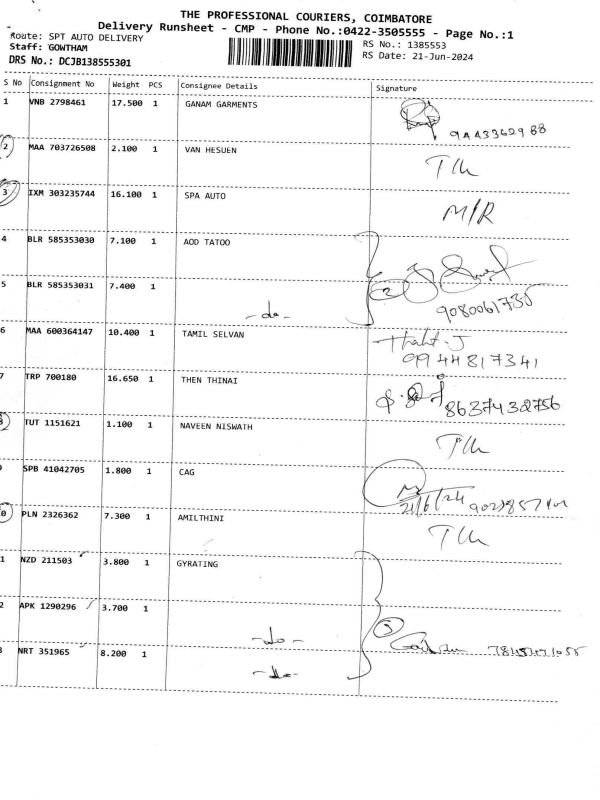 THE PROFESSIONAL COURIERS, COIMBATORE
Delivery Runsheet - CMP - Phone No.:0422-3505555 - Page No.:1
Route: SPT AUTO DELIVERY
Staff: GOWTHAM
DRS No.: DCJB138555301
RS No.: 1385553
RS Date: 21-Jun-2024
S No Consignment No Weight PCS Consignee Details Signature
1 VNB 2798461 17.500 1 GANAM GARMENTS
2 MAA 703726508 2.100 1 VAN HESUEN
3 IXM 303235744 16.100 1 SPA AUTO M/R
4 BLR 585353030 7.100 1 AOD TATOO
5 BLR 585353031 7.400 1 -do- 2 9080061735
6 MAA 600364147 10.400 1 TAMIL SELVAN
9944817341
7 TRP 700180 16.650 1 THEN THINAI 8637432756
8 TUT 1151621 1.100 1 NAVEEN NISWATH
9 SPB 41042705 1.800 1 CAG 21/6/24
0 PLN 2326362 7.300 1 AMILTHINI
1 NZD 211503 3.800 1 GYRATING
2 APK 1290296 3.700 1 -do- 3
3 NRT 351965 8.200 1 -do-